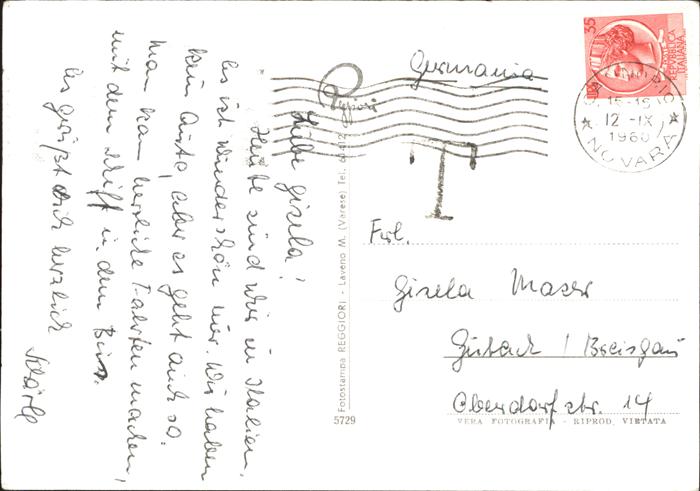 Liebe Gisela!
Heute sind wir in Italien.
Es ist wunderschön hier. Wir haben
kein Auto, aber es geht auch so.
Man kan herrliche Fahrten machen,
mit dem Schiff u. dem Bus.
Es grüßt Dich herzlich
Germania
35
REPUBBLICA
ITALIANA
15-16
12 -IX
1960
NOVARA
T
Frl.
Gisela Maser
Gutach / Breisgau
Oberdorfstr. 14
Fotostampa REGGIORI - Laveno M. (Varese) Tel.
5729
VERA FOTOGRAFIA - RIPROD. VIETATA